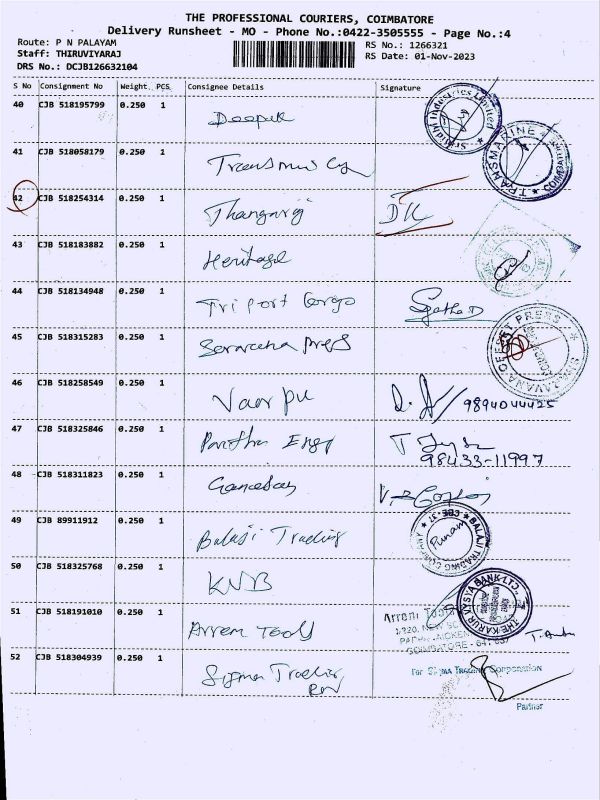 THE PROFESSIONAL COURIERS, COIMBATORE
Delivery Runsheet - MO - Phone No.:0422-3505555 - Page No.:4
Route: P N PALAYAM
RS No.: 1266321
Staff: THIRUVIYARAJ
RS Date: 01-Nov-2023
DRS No.: DCJB126632104
S No Consignment No Weight. PCS Consignee Details Signature
40 CJB 518195799 0.250 1 Deepak
Sri Nidhi Industries Limited
41 CJB 518058179 0.250 1
TRANSMARINE COIMBATORE
42 CJB 518254314 0.250 1 Thangaraj DK
43 CJB 518183882 0.250 1 Heritage
44 CJB 518134948 0.250 1 Tri port Cargo
45 CJB 518315283 0.250 1 Saravana press
SARAVANA OFFSET PRESS
46 CJB 518258549 0.250 1 9894044425
47 CJB 518325846 0.250 1 Pavithra Engg
98433-11997
48 CJB 518311823 0.250 1 Ganesan
49 CJB 89911912 0.250 1 Balaji Trading
BALAJI TRADING COMPANY CBE-37
Punam
50 CJB 518325768 0.250 1 KVB
THE KARUR VYSYA BANK LTD.
51 CJB 518191010 0.250 1 Arrem Tools
Arrem Tools
COIMBATORE - 641 037
52 CJB 518304939 0.250 1 Sigma Trading
For SIGMA TRADING Corporation
Partner